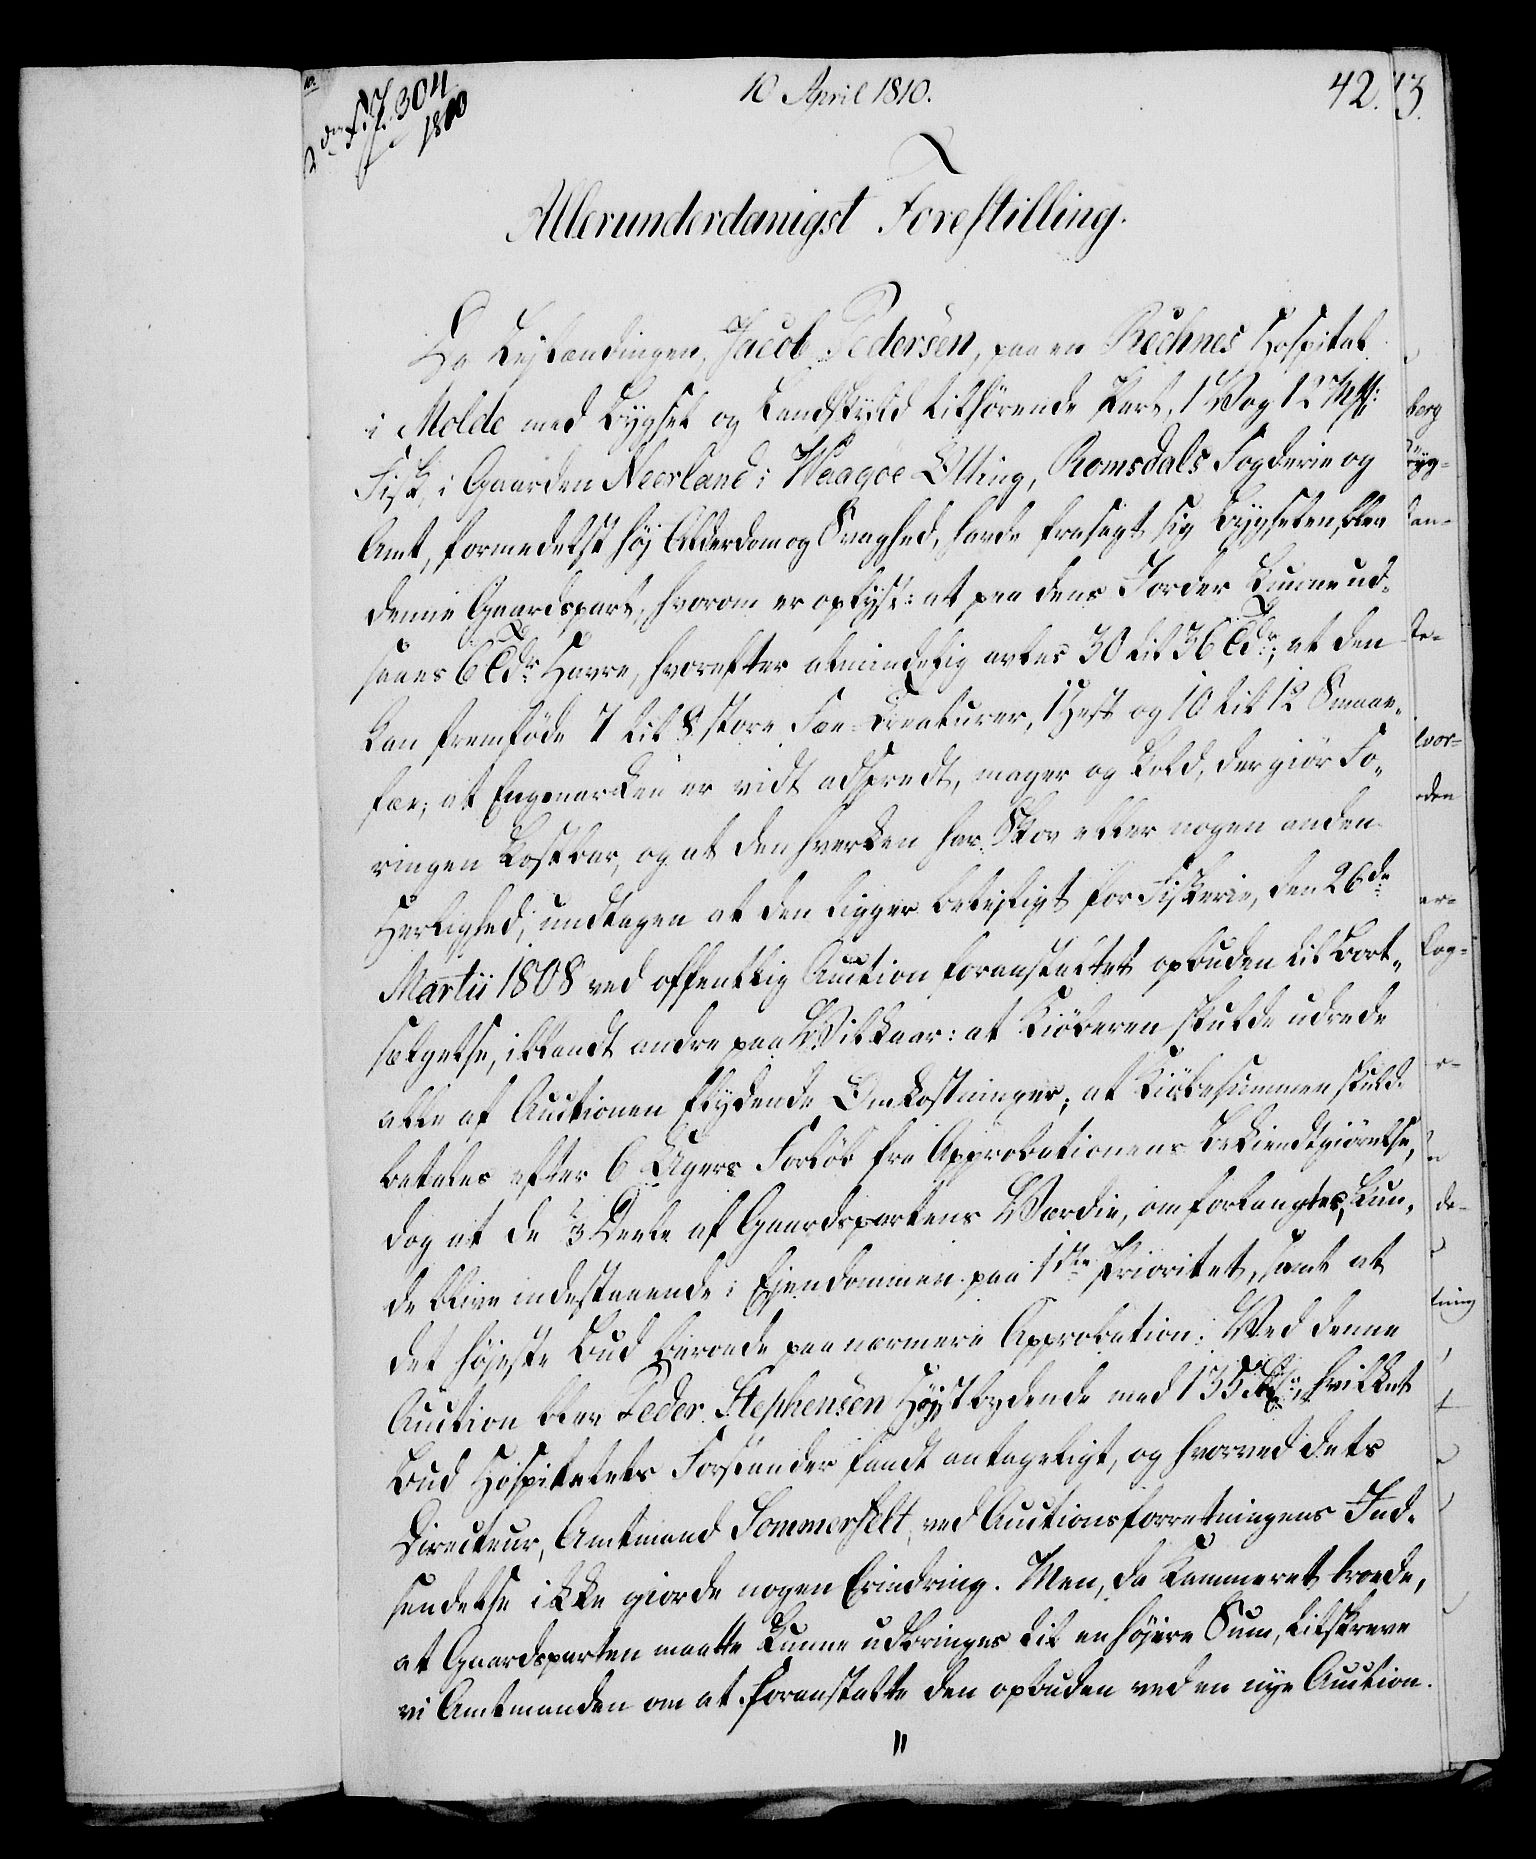 2den F. J. 304
1810
10 April 1810.
42.
Allerunderdanigst Forestilling.
Da Leylændingen, Jacob Pedersen, paa en Rechnes Hospital
i Molde med Bygsel og Landskyld tilhørende Part, 1 Vog 12 Mk:
Fisk, i Gaarden Neerland i Waagøe Otting, Romsdals Fogderie og
Amt, formedelst høj Alderdom og Svaghed, havde frasagt sig Bygselen paa
denne Gaardspart, hvorom er oplyst: at paa dens Jorder kunne ud-
saaes 6 Tdr Havre, hvorefter almindelig avles 30 til 36 Tdr; at den
kan fremføde 7 til 8 store Fæe-Creaturer, 1 Hest og 10 til 12 Smaae-
fæe; at Engmarken er vidt adspredt, mager og kold, der giør Fo-
ringen kostbar, og at den hverken har Skov eller nogen anden
Herlighed, undtagen at den ligger beleiligt for Fiskerie, den 26de
Martii 1808 ved offentlig Auction foranstaltet opbuden til Bort-
sælgelse, iblandt andre paa Vilkaar: at Kiøberen skulde udrede
alle af Auctionen flydende Omkostninger; at Kiøbesummen skulde
betales efter 6 Ugers Forløb fra Approbationens Bekiendtgiørelse,
dog at de 2/3 Deele af Gaardspartens Værdie, om forlangtes, kun-
de blive indestaaende i Ejendommen paa 1ste Prioritet, samt at
det højeste Bud beroede paa nærmere Approbation. Ved denne
Auction blev Peder Stephensen Højstbydende med 135 Rd:, hvilket
Bud Hospitalets Forstander fandt antageligt, og hvorved dets
Directeur, Amtmand Sommerfelt, ved Auctionsforretningens Ind-
sendelse ikke giorde nogen Erindring. Men, da Kammeret troede,
at Gaardsparten maatte kunne udbringes til en højere Sum, tilskreve
vi Amtmanden om at foranstalte den opbuden ved en nye Auction.